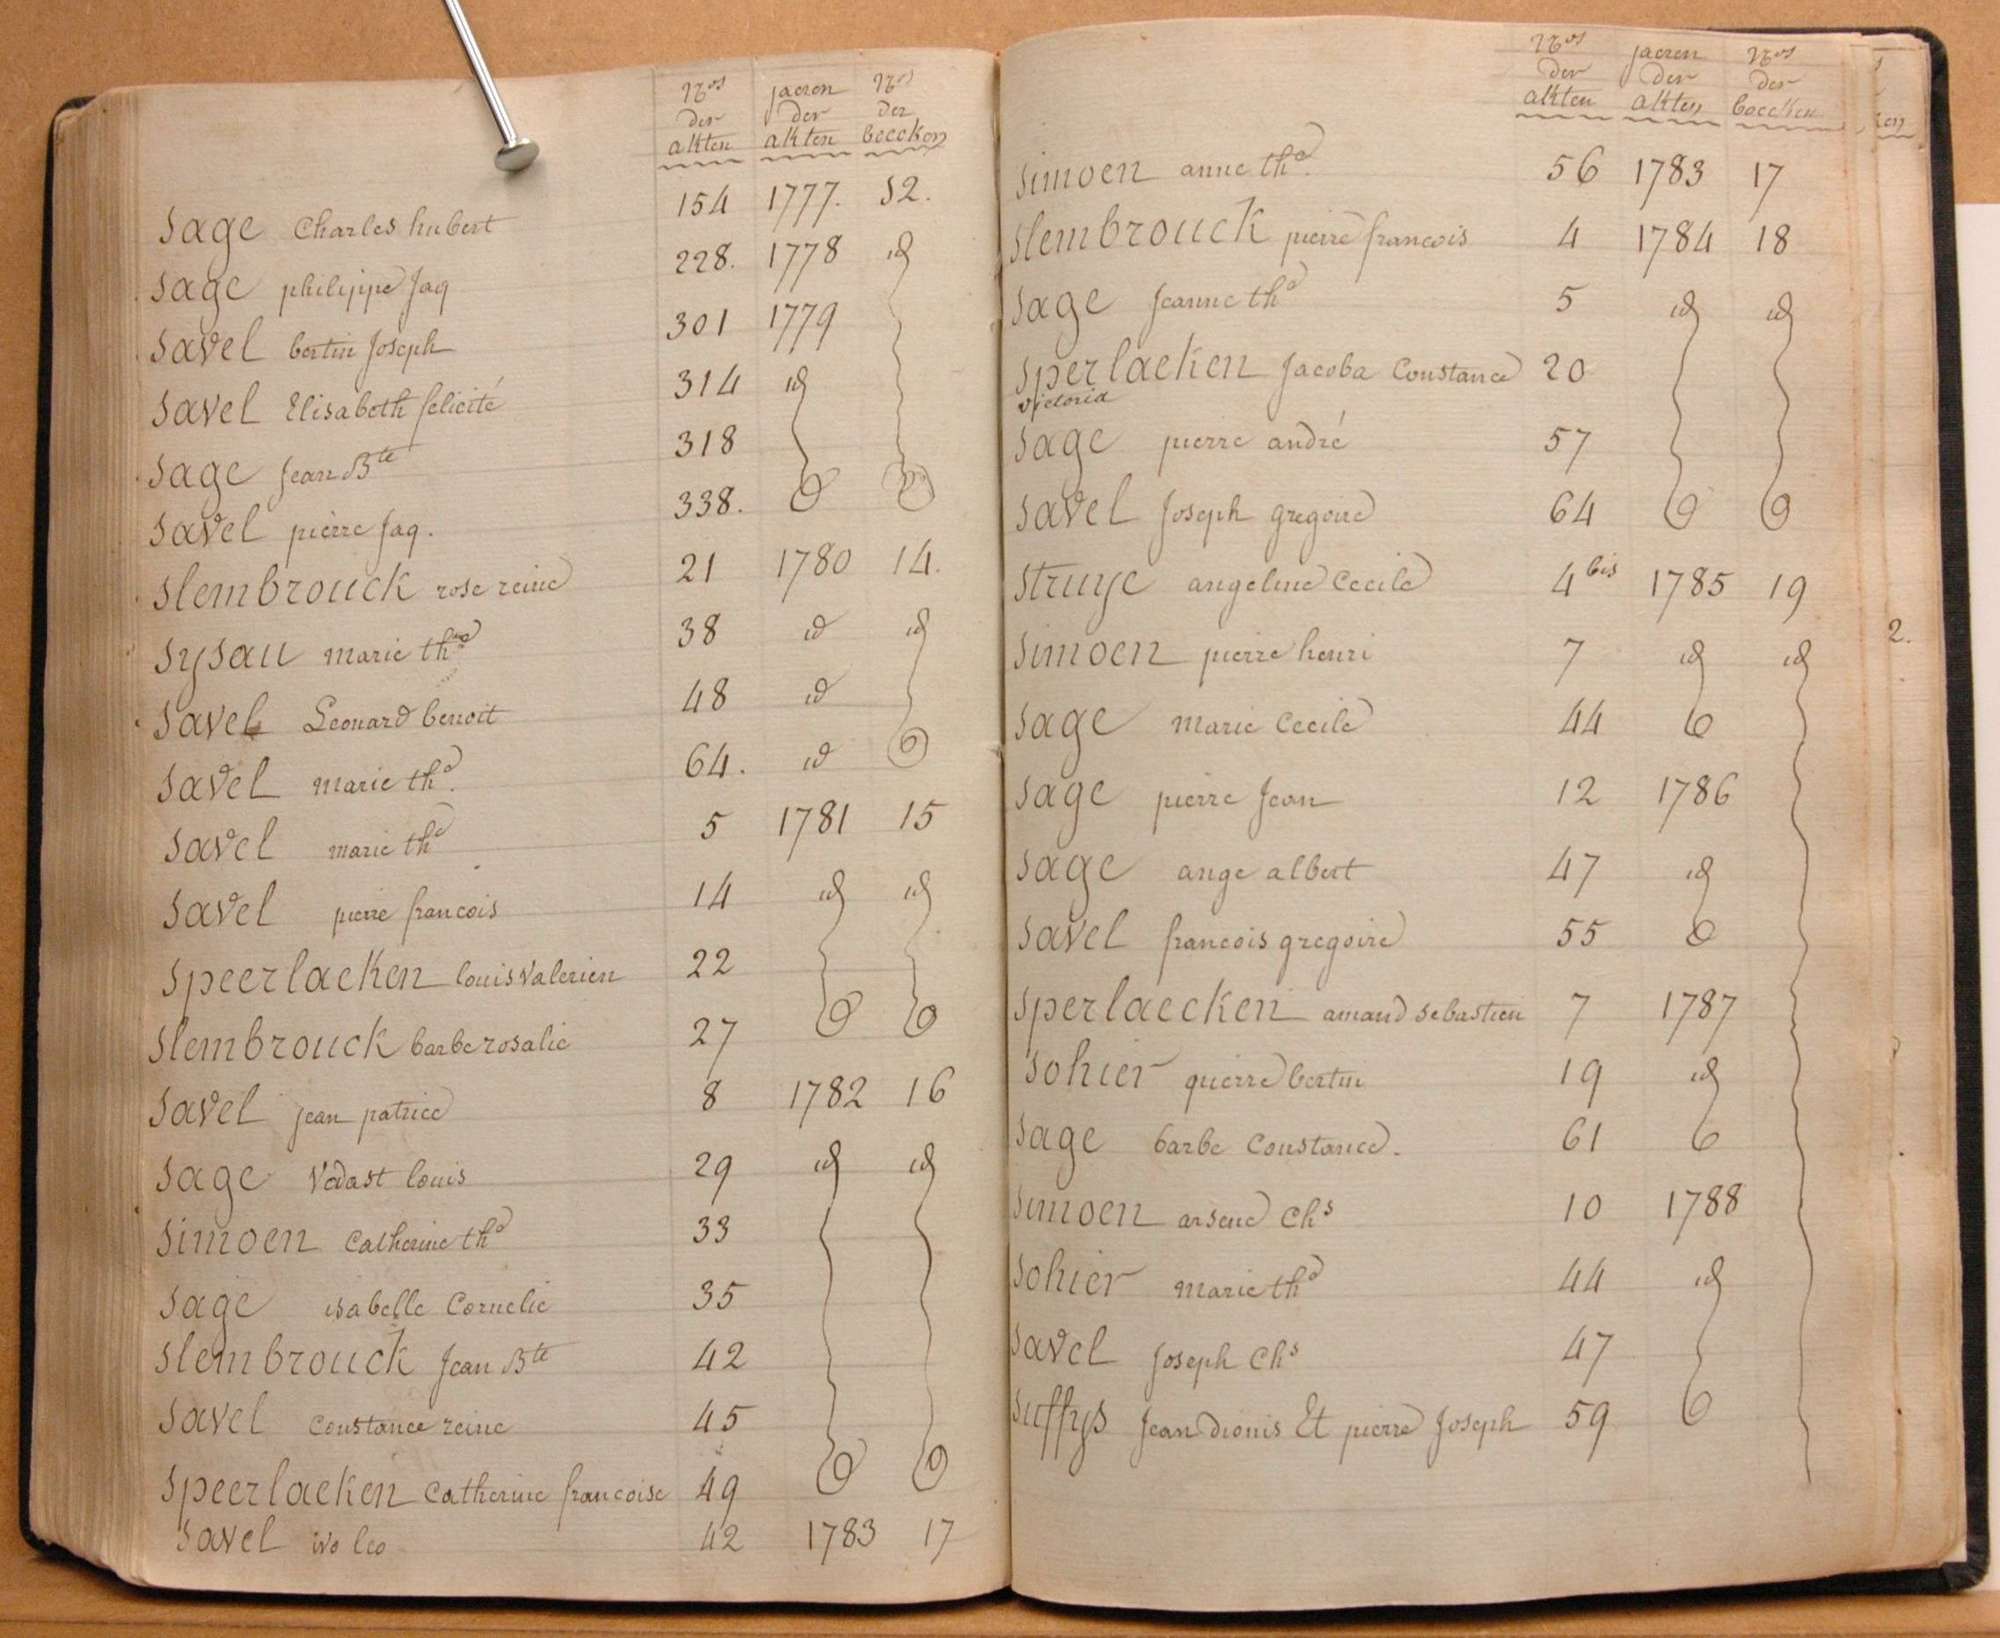 Nos jaeren Nos
der der der
akten akten boecken
sage Charles hubert 154 1777. 12.
sage philippe Jaq 228. 1778 id
savel bertin Joseph 301 1779
savel Elisabeth felicité 314 id
sage Jean Bte 318
savel pierre Jaq. 338.
slembrouck rose reine 21 1780 14.
sysau marie the 38 id id
savel Leonard benoit 48 id
savel marie the. 64. id
savel marie the 5 1781 15
savel pierre francois 14 id id
speerlaeken louis valerien 22
slembrouck barbe rosalie 27
savel jean patrice 8 1782 16
sage Vedast louis 29 id id
simoen Catherine the 33
sage isabelle Cornelie 35
slembrouck Jean Bte 42
savel Constance reine 45
speerlaeken Catherine francoise 49
savel ivo leo 42 1783 17
Nos jaeren Nos
der der der
akten akten boecken
simoen anne the. 56 1783 17
slembrouck pierre francois 4 1784 18
sage Jeanne the 5 id id
sperlaeken Jacoba Constance 20
victoria
sage pierre andré 57
savel Joseph gregoire 64
struye angeline Cecile 4bis 1785 19
simoen pierre henri 7 id id
sage marie Cecile 44
sage pierre Jean 12 1786
sage ange albert 47 id
savel francois gregoire 55
sperlaecken amand sebastien 7 1787
sohier pierre bertin 19 id
sage barbe Constance. 61
simoen arsene Chs 10 1788
sohier marie the 44 id
savel Joseph Chs 47
suffys Jean dionis Et pierre Joseph 59
2.